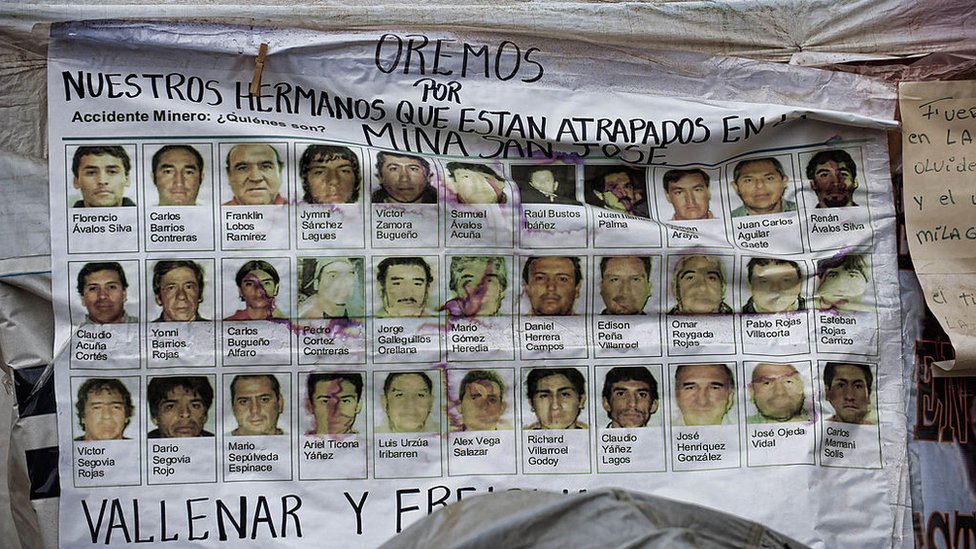 OREMOS
POR
NUESTROS HERMANOS QUE ESTAN ATRAPADOS EN
MINA SAN JOSE
Accidente Minero: ¿Quiénes son?
Florencio
Ávalos Silva
Carlos
Barrios
Contreras
Franklin
Lobos
Ramírez
Jymmi
Sánchez
Lagues
Víctor
Zamora
Bugueño
Samuel
Ávalos
Acuña
Raúl Bustos
Ibáñez
Juan
Palma
Araya
Juan Carlos
Aguilar
Gaete
Renán
Ávalos Silva
Claudio
Acuña
Cortés
Yonni
Barrios
Rojas
Carlos
Bugueño
Alfaro
Pedro
Cortez
Contreras
Jorge
Galleguillos
Orellana
Mario
Gómez
Heredia
Daniel
Herrera
Campos
Edison
Peña
Villarroel
Omar
Reygada
Rojas
Pablo Rojas
Villacorta
Esteban
Rojas
Carrizo
Víctor
Segovia
Rojas
Dario
Segovia
Rojo
Mario
Sepúlveda
Espinace
Ariel Ticona
Yáñez
Luis Urzúa
Iribarren
Alex Vega
Salazar
Richard
Villarroel
Godoy
Claudio
Yáñez
Lagos
José
Henríquez
González
José Ojeda
Vidal
Carlos
Mamani
Solis
VALLENAR Y
Fue
en LA
OLVID
y el
MILAG
el